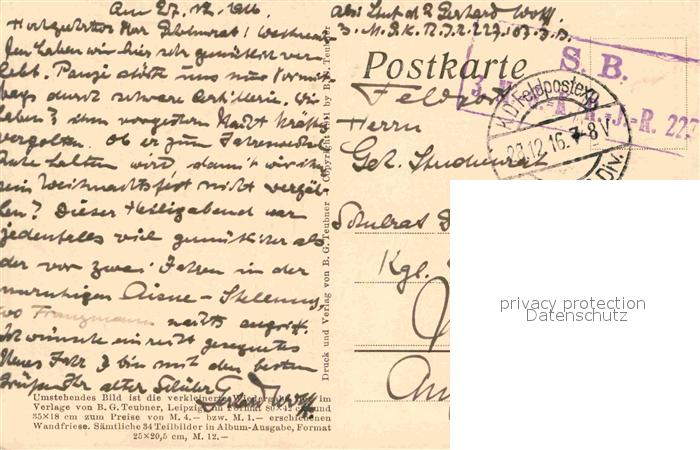 Am 27. 12. 1916.
Hochgeehrter Herr Geheimrat! Weihnach-
ten haben wir hier sehr gemütlich ver-
lebt. Panje störte uns nur Vormit-
tags durch schwere Artillerie. Wir
haben's ihm vorgestern Nacht kräftig
vergolten. Ob er zum Jahreswechsel
Ruhe halten wird, damit wir ihm
sein Weihnachtsfest nicht vergäl-
len? Dieser Heiligabend war
jedenfalls viel gemütlicher als
der vor zwei Jahren in der
unruhigen Aisne-Stellung,
wo Franzmann nachts angriff.
Ich wünsche ein recht gesegnetes
Neues Jahr & bin mit den besten
Grüßen Ihr alter Schüler G. Wolff.
Umstehendes Bild ist die verkleinerte Wiedergabe im
Verlage von B. G. Teubner, Leipzig, im Format 80×42 cm und
35×18 cm zum Preise von M. 4.— bzw. M. 1.— erschienenen
Wandfriese. Sämtliche 34 Teilbilder in Album-Ausgabe, Format
25×20,5 cm, M. 12.—
Druck und Verlag von B. G. Teubner Copyright 1911 by B. G. Teubner
Abs: Leut. d. R. Gerhard Wolff.
3. M.G.K. R.I.R. 227, 107. I.D.
Postkarte
S. B.
R.-J.-R. 227
K.D. Feldpostexp.
28.12.16. 7-8 V
Div.
Feldpost
Herrn
Geh. Studienrat
Schulrat D
Kgl.
privacy protection
Datenschutz